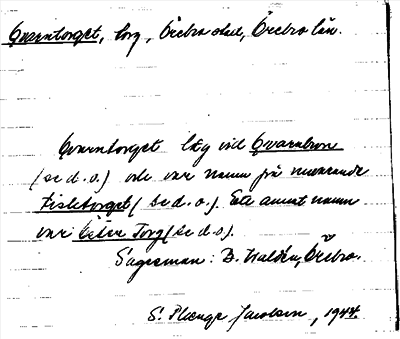 Qvarntorget, torg, Örebro stad, Örebro län.
Qvarntorget låg vid Qvarnbron
(se d.o.) och var namn på nuvarande
Fisktorget (se d.o.). Ett annat namn
var Torg (se d.o.).
Sagesman: B. Waldén, Örebro.
S. Plenge Jacobsen, 1944.